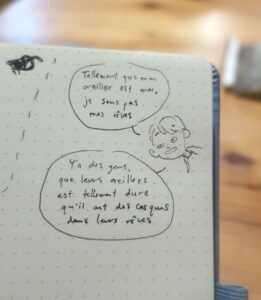 Tellement que mon
oreiller est mou,
je sens pas
mes rêves
Y'a des gens,
que leurs oreillers
est tellement dure
qu'il ont des casques
dans leurs rêves